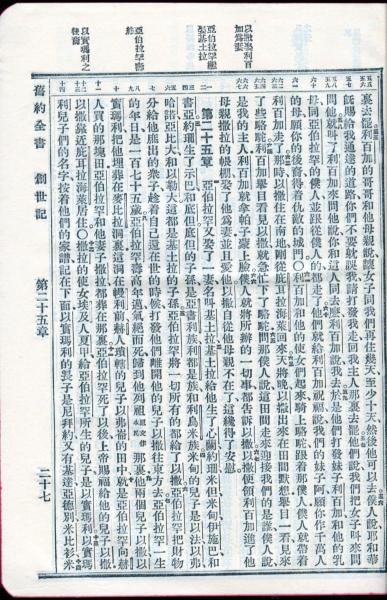 以撒娶利百
加爲妻
亞伯拉罕繼
娶基土拉
亞伯拉罕壽
終
以實瑪利之
後裔
裏去罷利百加的哥哥和他母親說讓女子同我們再住幾天至少十天然後他可以去僕人說耶和華
旣賜給我通達的道路你們不要躭誤我請打發我走回我主人那裏去罷他們說我們把女子叫來問
問他就叫了利百加來問他說你和這人同去麼利百加說我去於是他們打發妹子利百加和他的乳
母同亞伯拉罕的僕人並跟從僕人的都走了他們就給利百加祝福說我們的妹子阿願你作千萬人
的母願你的後裔得着仇敵的城門○利百加和他的使女們起來騎上駱駝跟着那僕人僕人就帶着
利百加走了那時以撒住在南地剛從庇耳拉海萊回來天將晚以撒出來在田間默想舉目一看見來
了些駱駝利百加舉目看見以撒就急忙下了駱駝問那僕人說這田間走來迎接我們的是誰僕人說
是我的主人利百加就拿帕子蒙上臉僕人就將所辦的一切事都告訴以撒以撒便領利百加進了他
母親撒拉的帳棚娶了他爲妻並且愛他以撒自從他母親不在了這纔得了安慰
第二十五章 亞伯拉罕又娶了一妻名叫基土拉基土拉給他生了心蘭約珊米但米甸伊施巴和
書亞約珊生了示巴和底但底但的子孫是亞書利族利都是族和利烏米族米甸的兒子是以法以弗
哈諾亞比大和以勒大這都是基土拉的子孫亞伯拉罕將一切所有的都給了以撒亞伯拉罕把財物
分給他庶出的衆子趁着自己還在世的時候打發他們離開他的兒子以撒往東方去亞伯拉罕一生
的年日是一百七十五歲亞伯拉罕壽高年邁氣絕而死歸到他列祖原文作本民那裏他兩個兒子以撒以
實瑪利把他埋葬在麥比拉洞裏這洞在幔利前赫人瑣轄的兒子以弗崙的田中就是亞伯拉罕向赫
人買的那塊田亞伯拉罕和他妻子撒拉都葬在那裏亞伯拉罕死了以後上帝賜福給他的兒子以撒
以撒靠近庇耳拉海萊居住○撒拉的使女埃及人夏甲給亞伯拉罕所生的兒子是以實瑪利以實瑪
利兒子們的名字按着他們的家譜記在下面以實瑪利的長子是尼拜約又有基達亞德別米比衫米
舊約全書 創世記 第二十五章 二十七